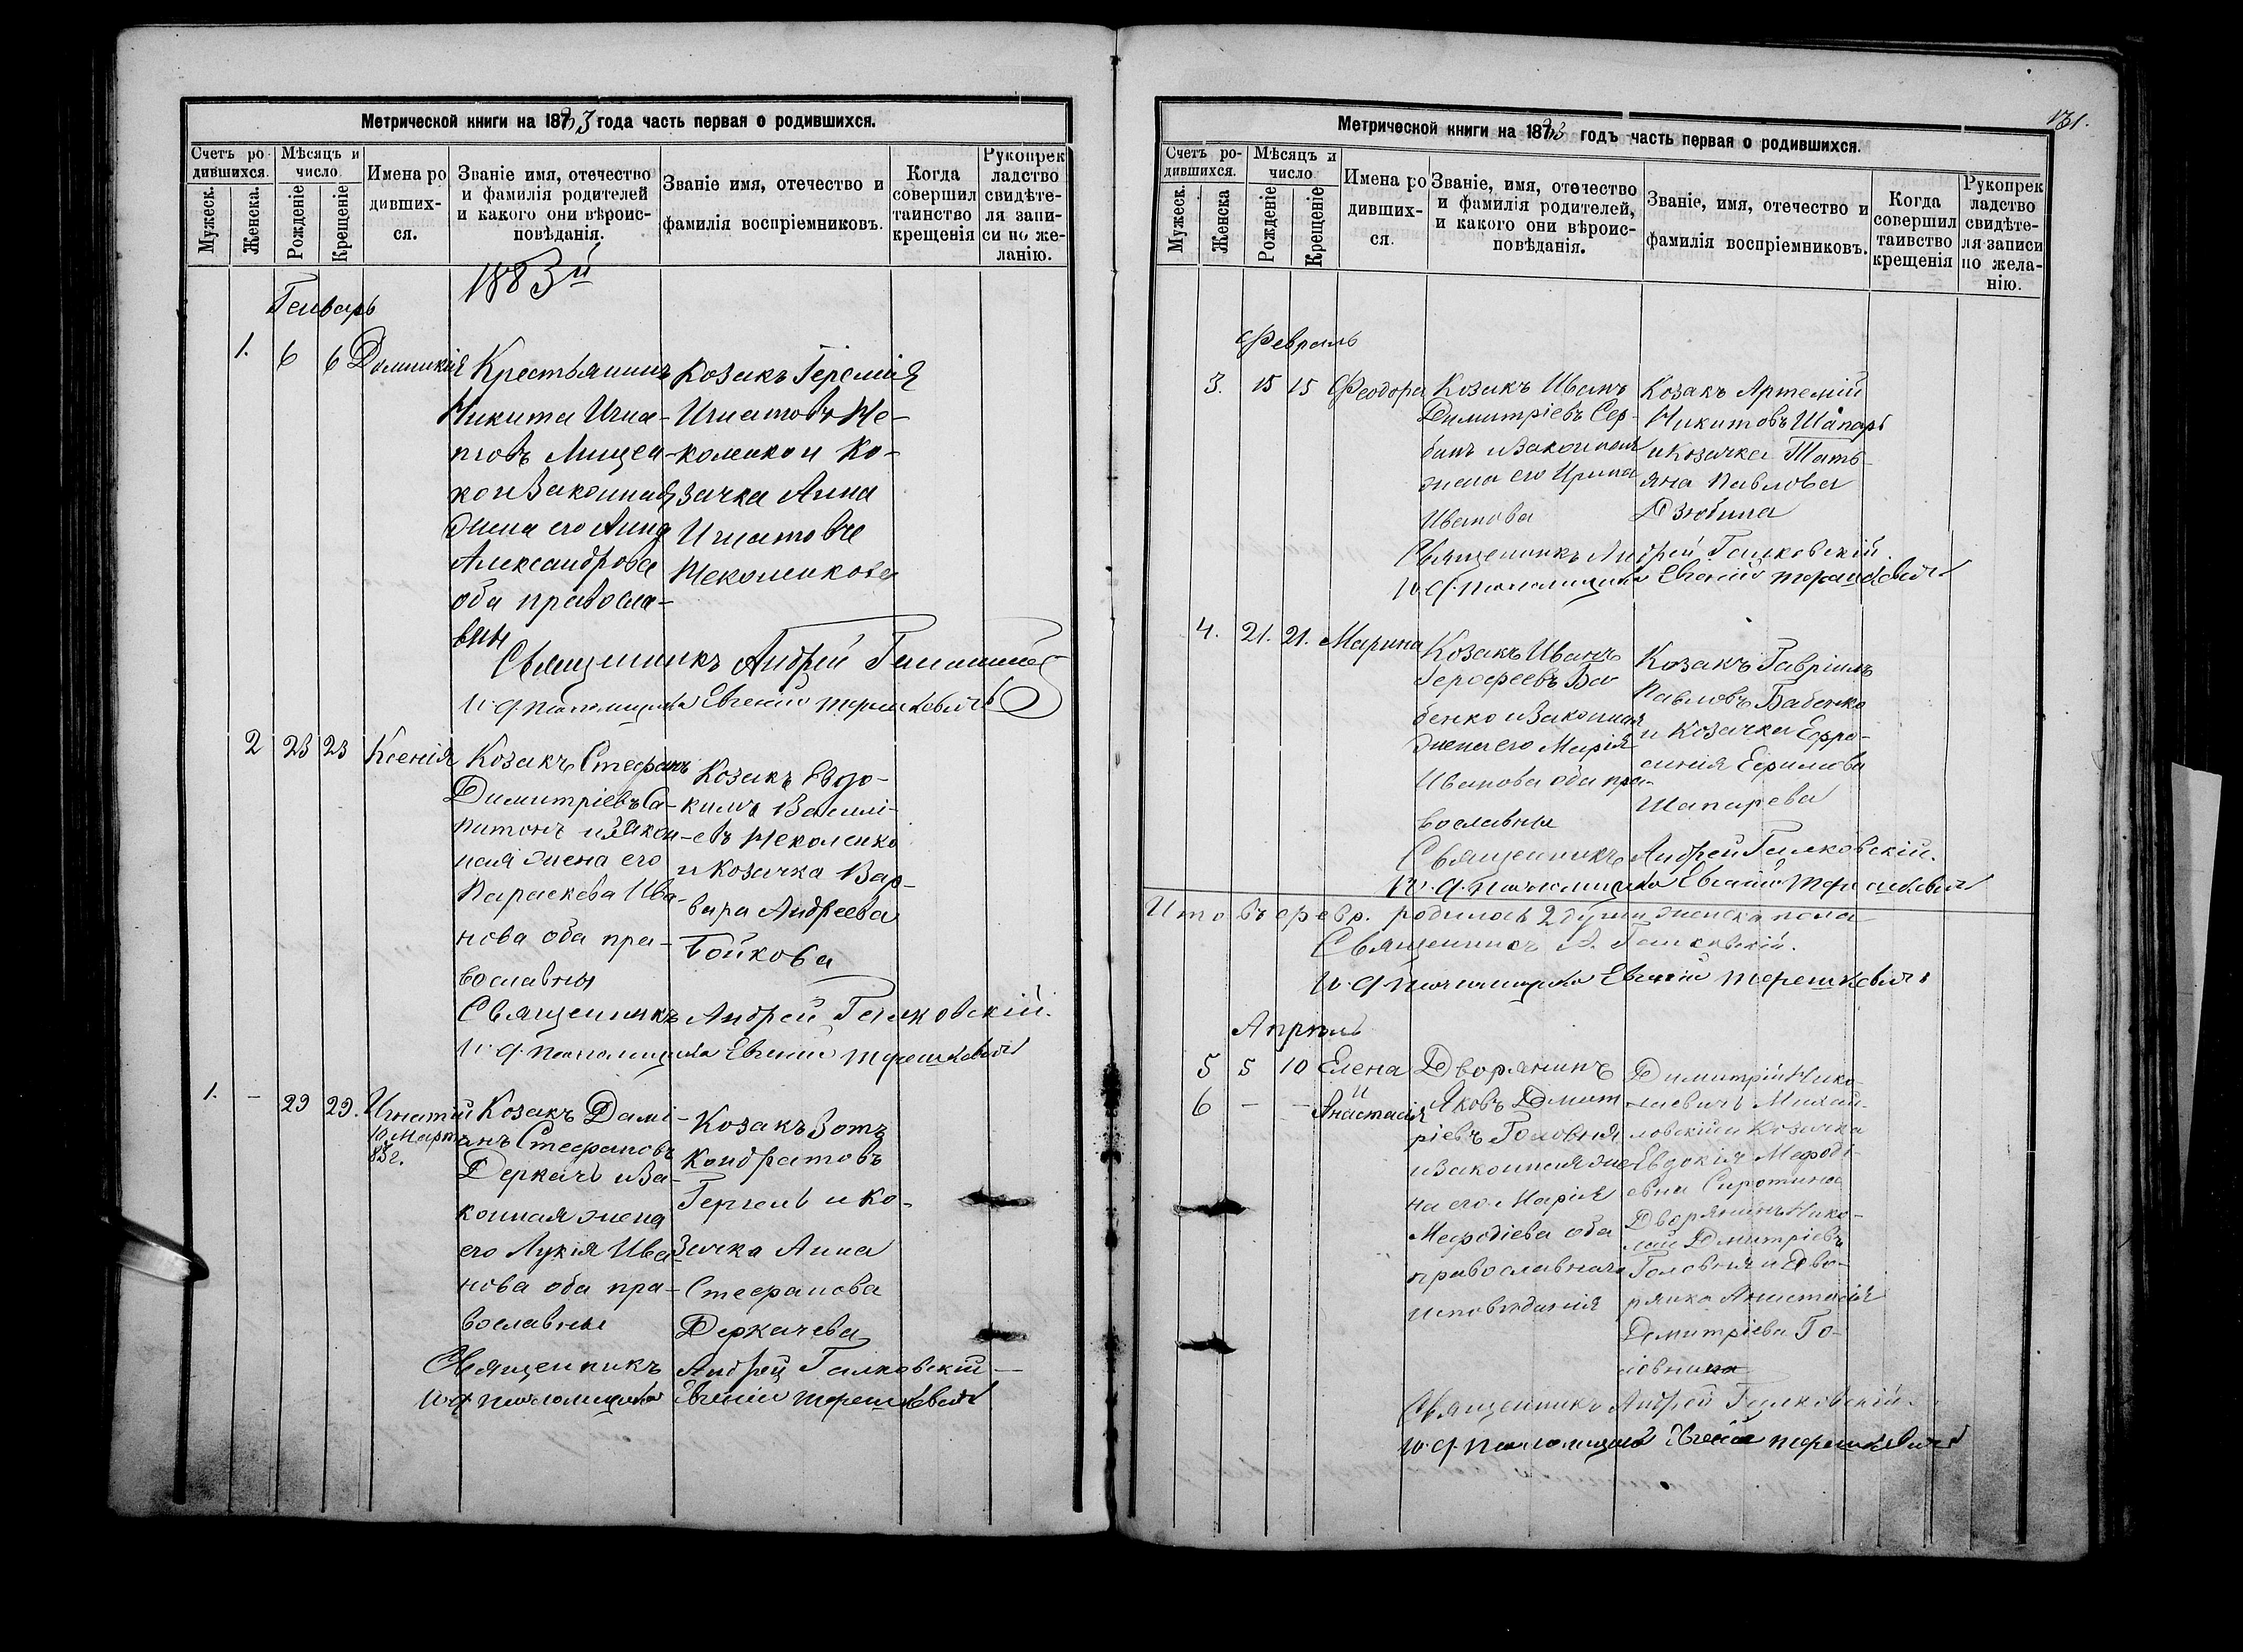 Метрической книги на 1883 года часть первая о родившихся.
Счетъ ро-
дившихся.
Мѣсяцъ и
число
Имена ро
дивших-
ся.
Званіе имя, отечество
и фамилія родителей
и какого они вѣроис-
повѣданія.
Званіе имя, отечество и
фамилія воспріемниковъ.
Когда
совершил
таинство
крещенія
Рукоприк
ладство
свидѣте-
ля запи-
си по же-
ланію.
Мужеск.
Женска.
Рожденіе
Крещеніе
1883й
Генварь
1. 6 6 Домникія
Крестьянинъ
Никита Игна-
товъ
законная
жена его Анна
Александрова
оба правосла-
вны
Козакъ Іеремія
Игнатовъ Же-
коленко и Ко-
зачка Анна
Игнатова
Жеколенкова
Священникъ Андрей
и. д. псаломщика Евгеній Терешкевичъ
2 23 23 Ксенія
Козакъ Стефанъ
Димитріевъ Са-
питонъ и закон-
ная жена его
Параскева Ива-
нова оба пра-
вославны
Козакъ Евдо-
кимъ Василі-
евъ Жеколенко
и Козачка Вар-
вара Андреева
Бойкова
Священникъ Андрей Галковскій.
и. д. псаломщика Евгеній Терешкевичъ
1. - 29 29. Игнатій
10 Марта
83 г.
Козакъ Даміанъ
Стефановъ
Деркачъ и за-
конная жена
его Лукія Ива-
нова оба пра-
вославны
Козакъ Зотъ
Кондратовъ
Гергель и Ко-
зачка Анна
Стефанова
Деркачева
Священникъ Андрей Галковскій
и. д. псаломщика Евгеній Терешкевичъ
131.
Метрической книги на 1883 годъ часть первая о родившихся.
Счетъ ро-
дившихся.
Мѣсяцъ и
число
Имена ро
дивших-
ся.
Званіе, имя, отечество
и фамилія родителей,
и какого они вѣроис-
повѣданія.
Званіе, имя, отечество и
фамилія воспріемниковъ.
Когда
совершил
таинство
крещенія
Рукоприк
ладство
свидѣте-
ля записи
по жела-
нію.
Мужеск.
Женска
Рожденіе
Крещеніе
Февраль
3. 15 15 Феодора
Козакъ Иванъ
Димитріевъ Сер-
банъ и законная
жена его Ирина
Иванова
Козакъ Артемій
Никитовъ Шапарь
и Козачка Тать-
яна Павлова
Дзюбина
Священникъ Андрей Галковскій.
и. д. псаломщика Евгеній Терешкевичъ
4. 21. 21. Марина
Козакъ Иванъ
Герофеевъ Ба
бенко и законная
жена его Марія
Иванова оба пра-
вославны
Козакъ Гавріилъ
Павловъ Бабенко
и Козачка Евфро-
синія Ефимова
Шапарева
Священникъ Андрей Галковскій.
и. д. псаломщика Евгеній Терешкевичъ
Итого въ февр. родилось 2 души женска пола
Священникъ А. Галковскій.
и. д. псаломщика Евгеній Терешкевичъ
Апрѣль
5 5 10 Елена
и
6 - - Анастасія
Дворянинъ
Яковъ Дмит
ріевъ Головня
и законная же-
на его Марія
Мефодіева оба
православнаго
исповѣданія
Димитрій Нико-
лаевичъ Михай-
ловскій и Козачка
Евдокія Мефоді-
евна Сиротина
Дворянинъ Нико-
лай Дмитріевъ
Головня и Дво-
рянка Анастасія
Димитріева Го-
ловнина
Священникъ Андрей Галковскій.
и. д. псаломщика Евгеній Терешкевичъ